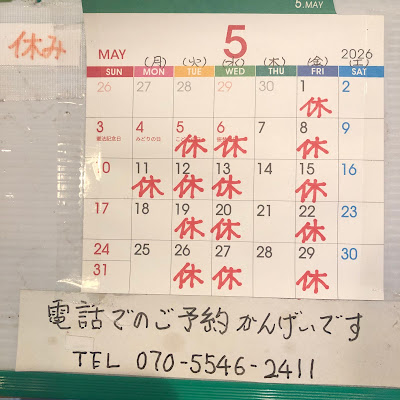 5.MAY
休み
MAY 5 2026
(月) (火) (水) (木) (金) (土)
SUN MON TUE WED THU FRI SAT
26 27 28 29 30 1 2
休
3 4 5 6 7 8 9
憲法記念日 みどりの日
休 休 休
10 11 12 13 14 15 16
休 休 休 休
17 18 19 20 21 22 23
休 休 休
24 25 26 27 28 29 30
31 休 休 休
電話でのご予約かんげいです
TEL 070-5546-2411